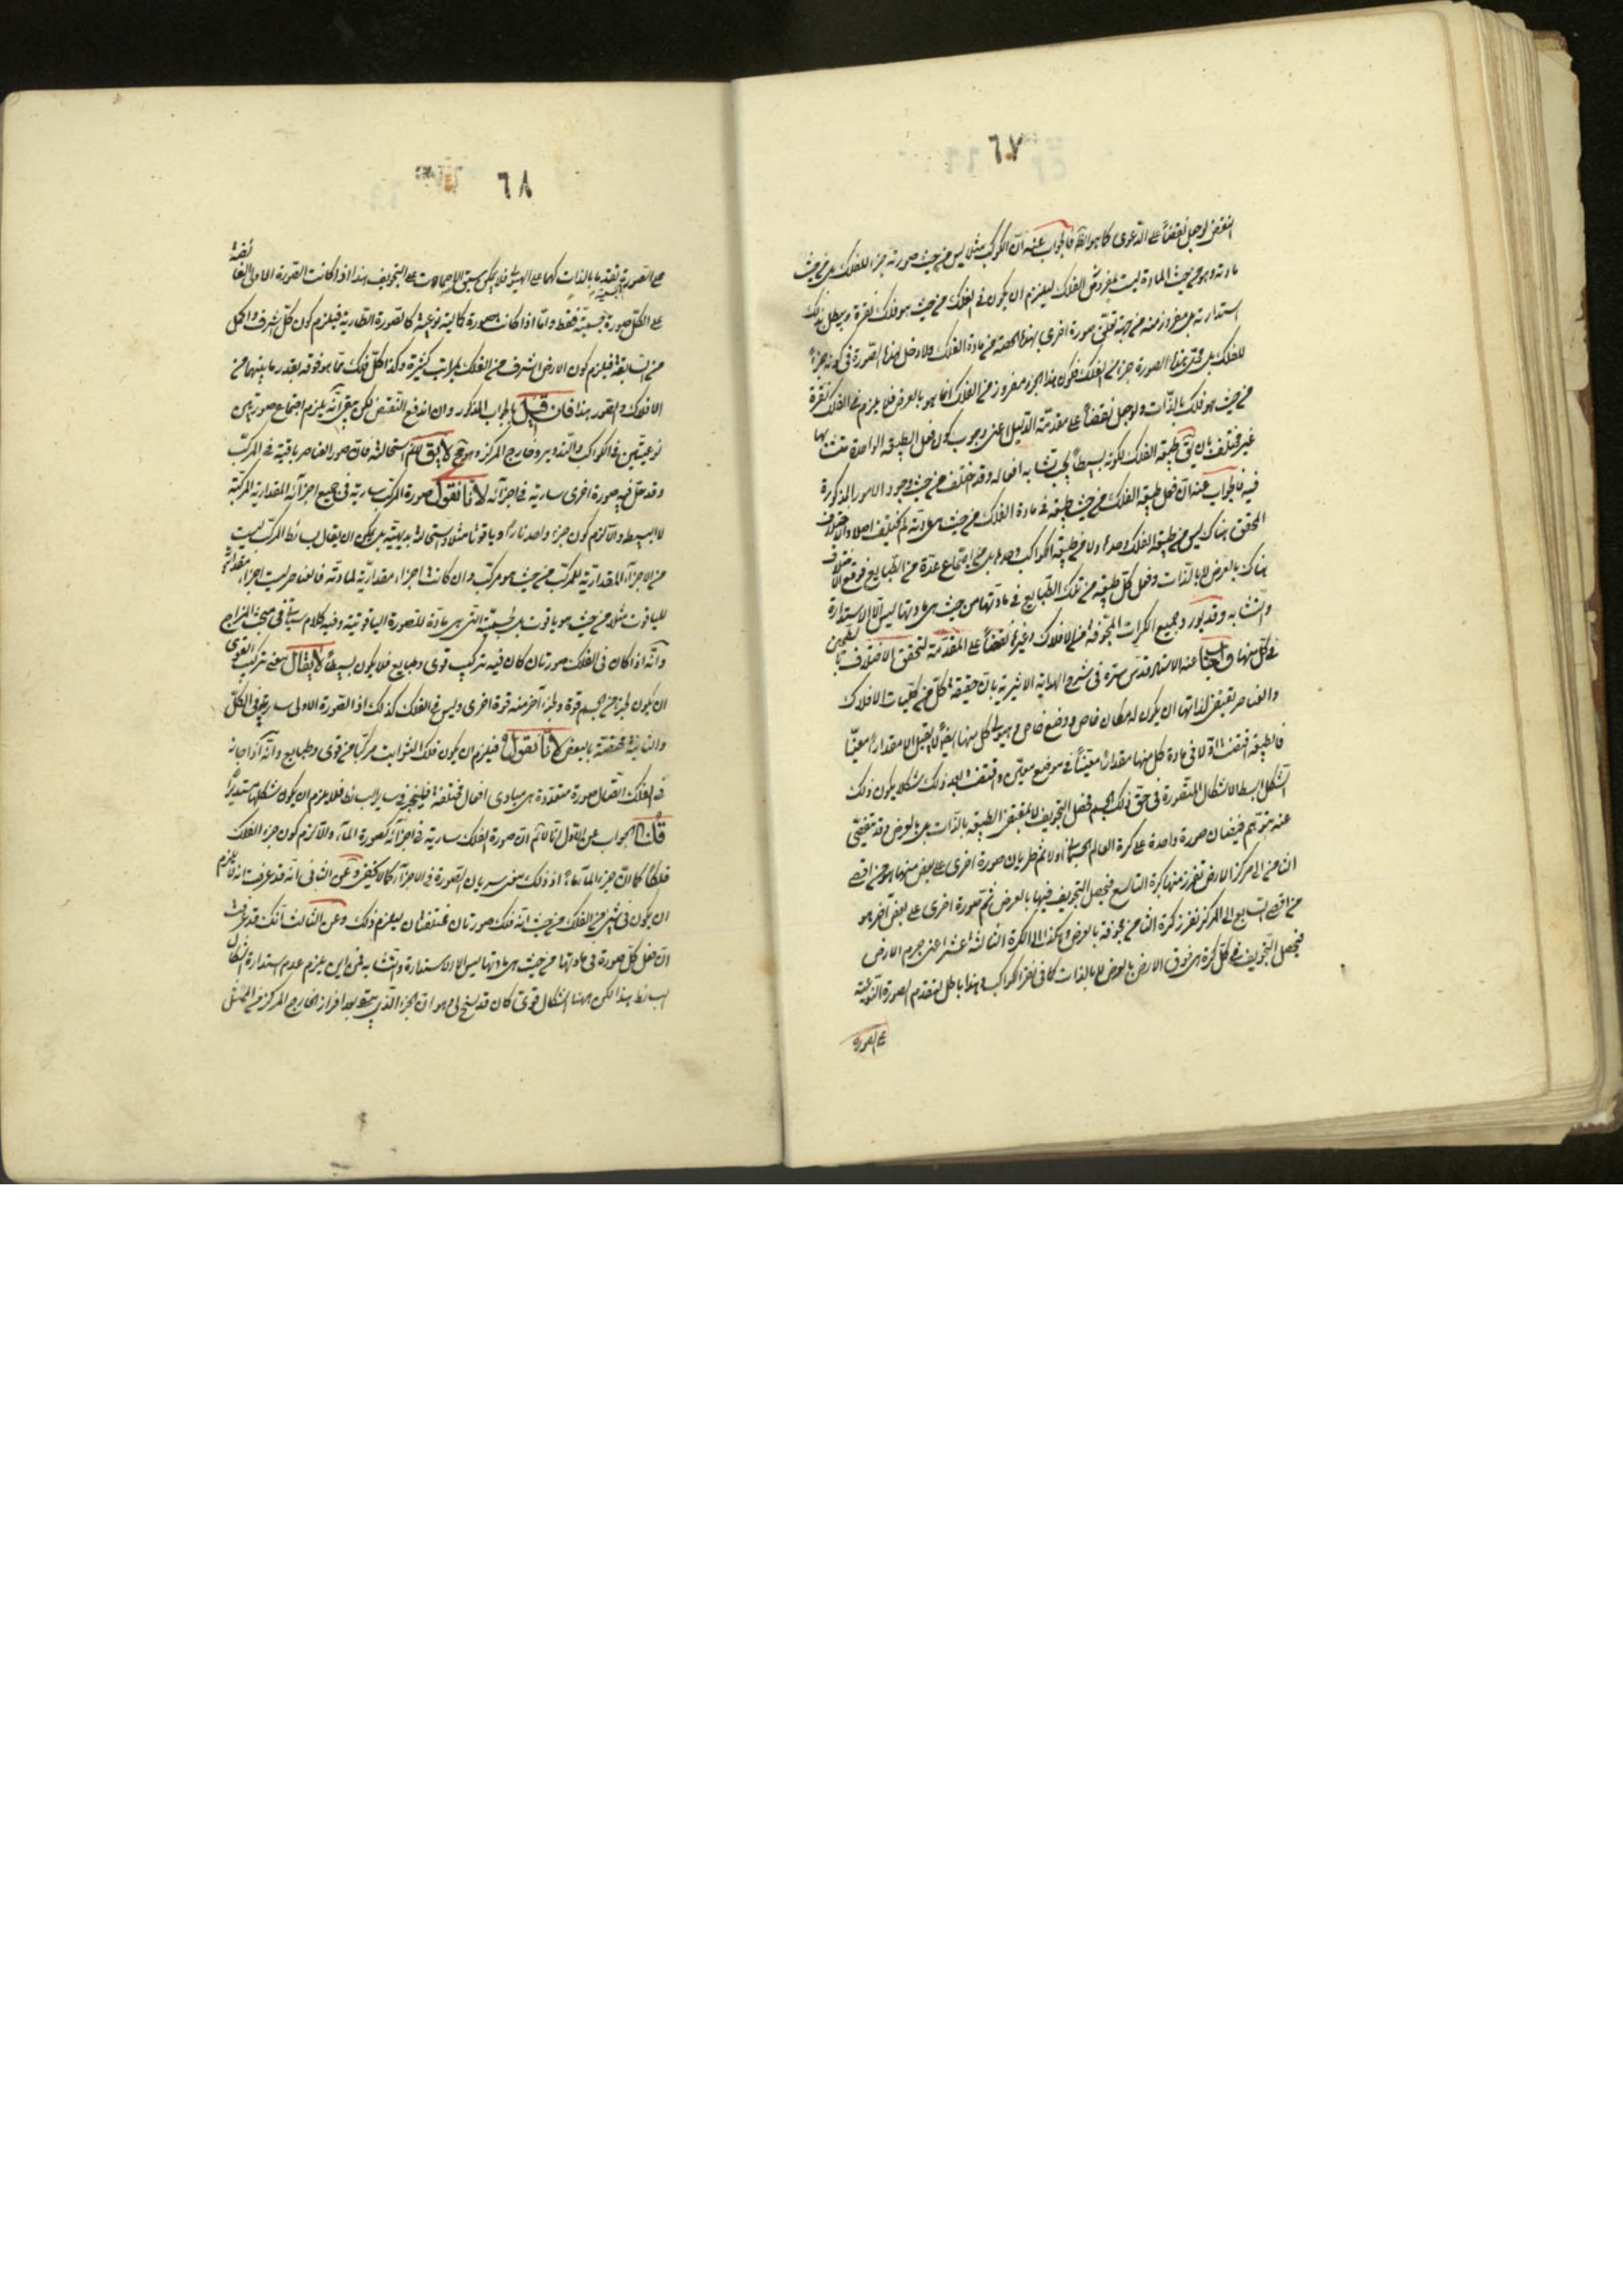 ٦٧
النقض لو جعل نقضاً على الدعوى كما هو الظ فالجواب عنه ان الكوكب مثلا ليس من حيث صورته جزء للفلك بل من حيث
مادته وهو من حيث المادة ليست بمفروض الفلك ليلزم ان يكون فى الفلك من حيث هو فلك نقرة ويبطل بذلك
استدارته بل مفروزة منه من جهة تعلق صورة اخرى بهذه الحصة من مادة الفلك ولا دخل لهذه الصورة فى كونه جزء
للفلك بل محتو بهذا الصورة جزء من الفلك فكون هذا الجزء مفروز من الفلك انما هو بالعرض فلا يلزم فى الفلك نقرة
من حيث هو فلك بالذات ولو جعل نقضاً على مقدمة الدليل اعنى وجوب كون فعل الطبيعة الواحدة متشابها
غير مختلف بان يق طبيعة الفلك لكونه بسيطاً يجب تشابه افعاله وقد اختلف من حيث وجود الامور المذكورة
فيه فالجواب عنه ان فعل طبيعة الفلك من حيث طبيعة فى مادة الفلك من حيث هى مادته لم تختلف اصلا والاختلاف
المحقق هناك ليس من طبيعة الفلك وحده ولا من طبيعة الكواكب وحدها بل من اجتماع عدة من الطبايع فوقع الاختلاف
هناك بالعرض لا بالذات وفعل كل طبيعة من تلك الطبايع فى مادتها من حيث هى مادتها ليس الا الاستدارة
والتشابه وقد يورد بجميع الكرات المجوفة من الافلاك وغيرها نقضاً على المقدمة لتحقق الاختلاف بالتجويف
فى كل منها واجاب عنه الاستاد قدس سره فى شرح الهداية الاثيرية بان حقيقة كل من كليات الافلاك
والعناصر يقتضى لذاتها ان يكون له مكان خاص ووضع خاص وهيولى كل منها ايضاً لا يقبل الا مقداراً معيناً
فالطبيعة اقتضت اولا فى مادة كل منها مقداراً معيناً فى موضع معين واقتضت بعد ذلك شكلا يكون ذلك
الشكل ابسط الاشكال المتصورة فى حق ذلك الجسم فحصل التجويف لا بمقتضى الطبيعة بالذات بل بالعرض وقد تفصى
عنه بتوهم فيضان صورة واحدة على كرة العالم الجسمانى اولا ثم طريان صورة اخرى على بعض منها هو من اقصى
الثامن الى مركز الارض تفرز منها كرة التاسع فيحصل التجويف فيها بالعرض ثم صورة اخرى على بعض آخر هو
من اقصى السابع الى المركز تفرز كرة الثامن مجوفة بالعرض وهكذا الى الكرة الثالثة عشر اعنى جرم الارض
فيحصل التجويف فى كل كرة هى فوق الارض بالعرض لا بالذات كما فى نقر الكواكب وهذا باطل لتقدم الصورة النوعية
على الصورة
٦٨
على الصورة الجسمية تقدما بالذات كهما على الهيولى فلا يمكن سبق الجسميات على التجويف هذا اذا كانت الصورة الاولى الفائضة
على الكل صورة جسمية فقط واما اذا كانت صورة كمالية نوعية كالصورة الطارية فيلزم كون كل اشرف واكمل
من السابقة فيلزم كون الارض اشرف من الفلك بمراتب كثيرة وكذا كل فلك مما هو فوقه بقدر ما بينهما من
الافلاك والصور هذا فان قيل الجواب المذكور وان اندفع النقض لكن بقى انه يلزم اجتماع صورتين
نوعيتين فى الكواكب والتدوير وخارج المركز وهو مح لا يق نلتزم استحالته فان صور العناصر باقية فى المركب
وقد حل فيه صورة اخرى سارية فى اجزائه لانا نقول صورة المركب سارية فى جميع اجزائه المقدارية المركبة
لا البسيطة والا لزم كون جزء واحد ناراً وياقوتا مثلا واستحالته بديهية بل يمكن ان يقال بسائط المركب ليست
من الاجزاء المقدارية للمركب من حيث هو مركب وان كانت اجزاء مقدارية لمادته فالعناصر ليست اجزاء مقدارية
للياقوت مثلا من حيث هو ياقوت بل لجسميته التى هى مادة للصورة الياقوتية وفيه كلام سيأتى فى مبحث المزاج
وانه اذا كان فى الفلك صورتان كان فيه تركيب قوى وطبايع فلا يكون بسيطاً لا يقال معنى تركيب القوى
ان يكون لجزء من الجسم قوة ولجزء آخر منه قوة اخرى وليس فى الفلك كذلك اذ الصورة الاولى سارية فى الكل
والثانية مختصة بالبعض لانا نقول فيلزم ان يكون فلك الثوابت مركبا من قوى وطبايع وانه اذا جاز
فى الفلك اتصال صورة متعددة هى مبادى افعال مختلفة فليجز فى ساير البسائط فلا يلزم ان يكون شكلها مستديراً
قلنا الجواب عن الاول انا لا نم ان صورة الفلك سارية فى اجزائه كصورة الماء والا لزم كون جزء الفلك
فلكاً كما ان جزء الماء ماء اذ ذلك معنى سريان الصورة فى الاجزاء كما لا يخفى وعن الثانى انه قد عرفت انه لا يلزم
ان يكون فى شىء من الفلك من حيث انه فلك صورتان مختلفتان ليلزم ذلك وعن الثالث انك قد عرفت
ان فعل كل صورة فى مادتها من حيث هى مادتها ليس الا الاستدارة والتشابه فمن اين يلزم عدم استدارة اشكال
البسائط هذا لكن ههنا اشكال قوى كان قد يسنح لى وهو ان الجزء الذى يبقى بعد افراز الخارج المركز من الممثل